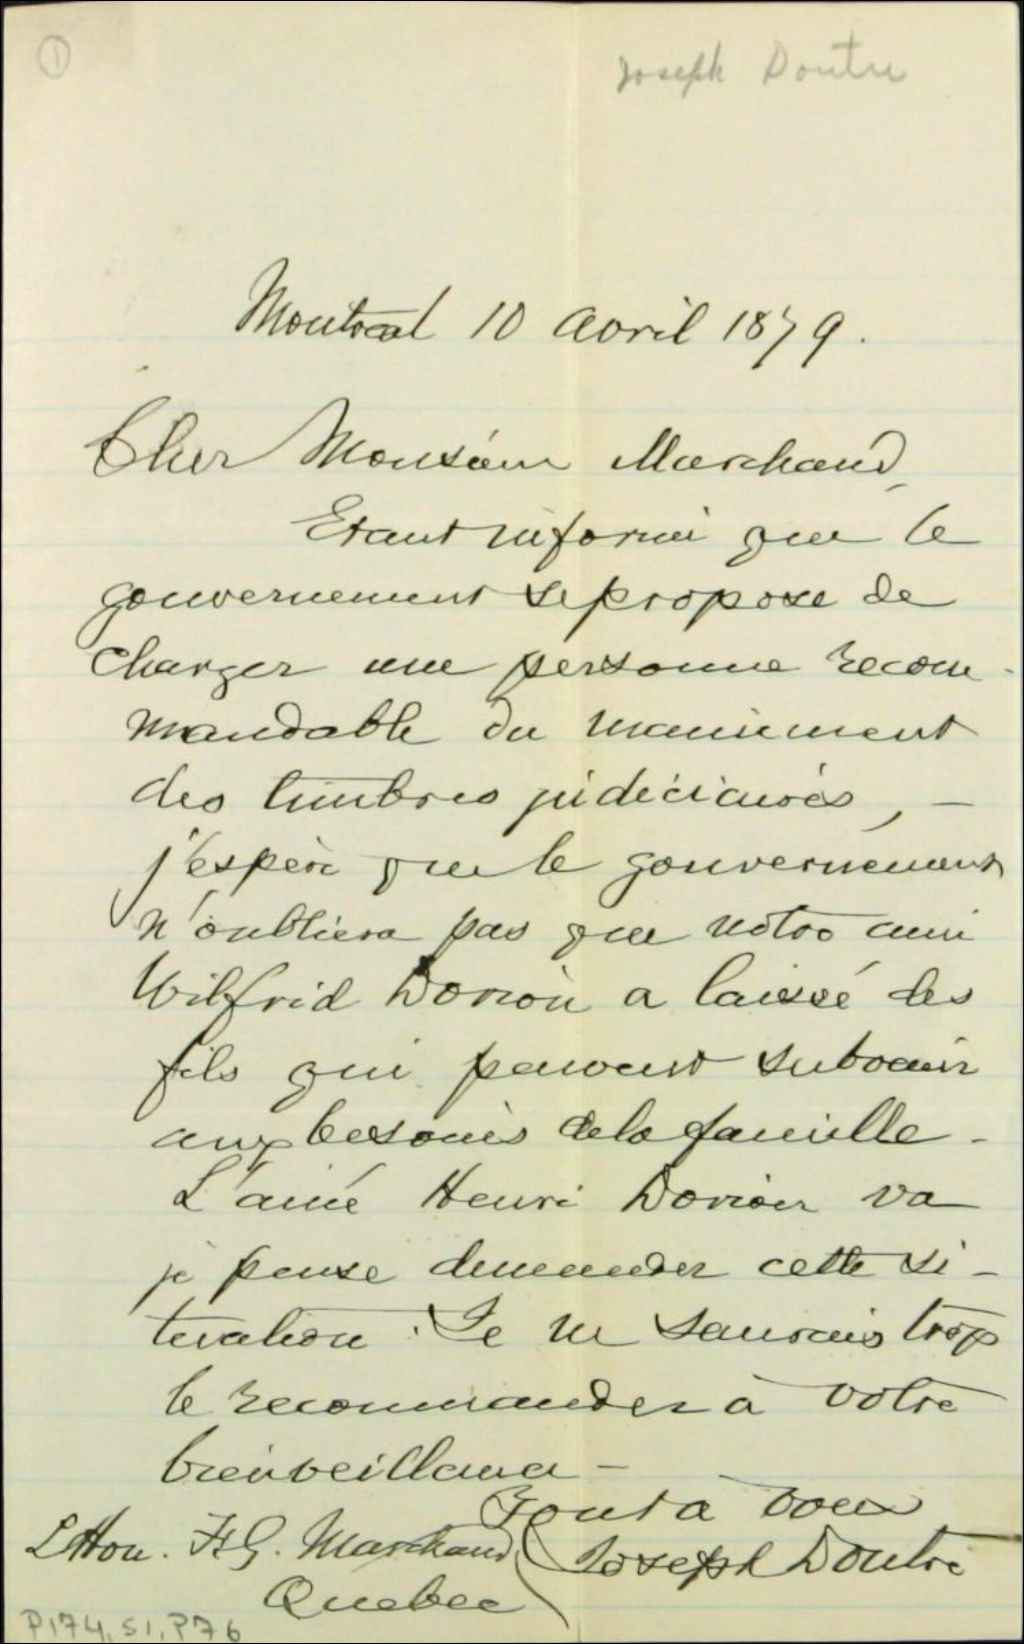 1
Joseph Doutre
Montreal 10 avril 1879.
Cher Monsieur Marchand,
Etant informé que le
gouvernement se propose de
charger une personne recom-
mandable du maniement
des timbres judiciaires, –
j'espère que le gouvernement
n'oubliera pas que notre ami
Wilfrid Dorion a laissé des
fils qui peuvent subvenir
aux besoins de la famille –
L'ainé Henri Dorion va
je pense demander cette si-
tuation. Je ne saurais trop
le recommander à votre
bienveillance –
Tout à vous
Joseph Doutre
L'Hon. F. G. Marchand
Quebec
P174, S1, P76